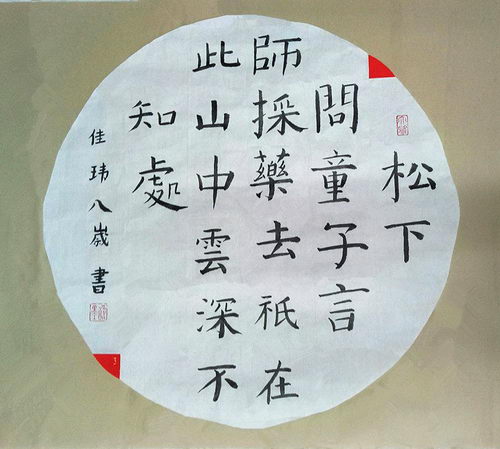 松下
問童子言
師採藥去祇在
此山中雲深不
知處
佳玮八歲書